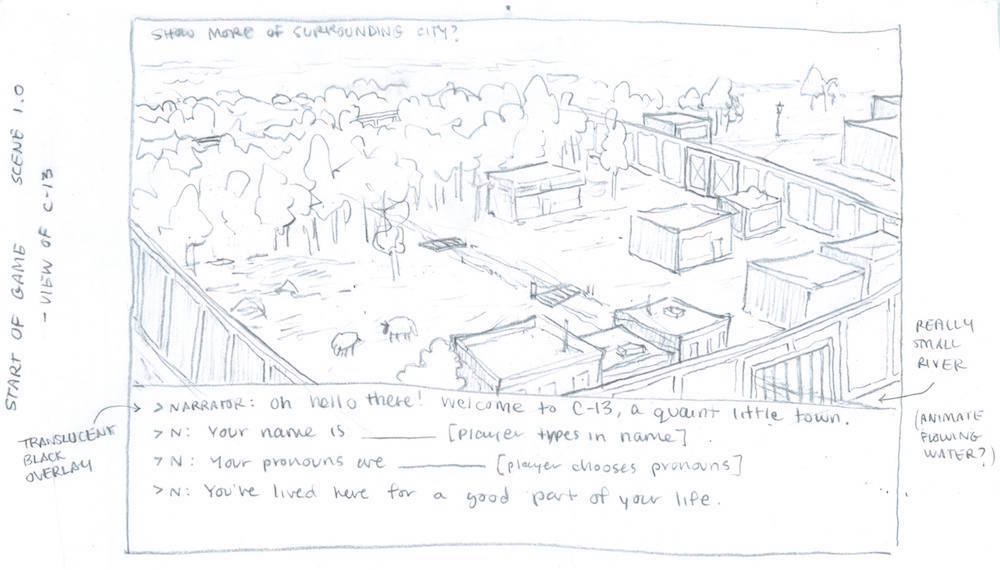 SHOW MORE OF SURROUNDING CITY?
START OF GAME SCENE 1.0
- VIEW OF C-13
REALLY
SMALL
RIVER
(ANIMATE
FLOWING
WATER?)
TRANSLUCENT
BLACK
OVERLAY
> NARRATOR: Oh hello there! Welcome to C-13, a quaint little town.
> N: Your name is ______ [player types in name].
> N: Your pronouns are ______ [player chooses pronouns]
> N: You've lived here for a good part of your life.